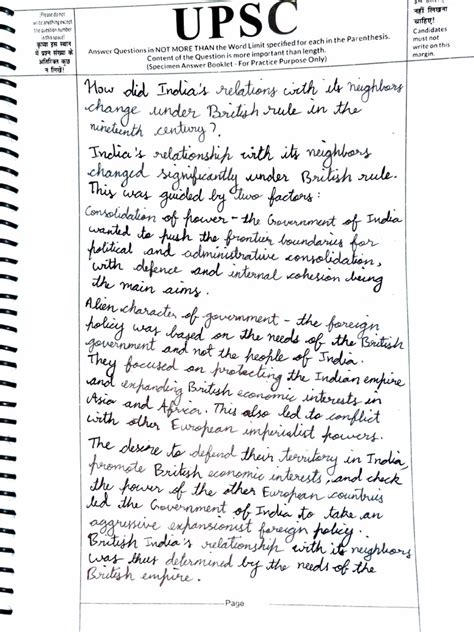 Please do not
write anything except
the question number
in this space!
कृपया इस स्थान
में प्रश्न संख्या के
अतिरिक्त कुछ
न लिखें!
UPSC
Answer Questions in NOT MORE THAN the Word Limit specified for each in the Parenthesis.
Content of the Question is more important than length.
(Specimen Answer Booklet - For Practice Purpose Only)
नहीं लिखना
चाहिए!
Candidates
must not
write on this
margin.
How did India's relations with its neighbors
change under British rule in the
nineteenth century?
India's relationship with its neighbors
changed significantly under British rule.
This was guided by two factors:
Consolidation of power - the Government of India
wanted to push the frontier boundaries for
political and administrative consolidation,
with defence and internal cohesion being
the main aims.
Alien character of government - the foreign
policy was based on the needs of the British
government and not the people of India.
They focused on protecting the Indian empire
and expanding British economic interests in
Asia and Africa. This also led to conflict
with other European imperialist powers.
The desire to defend their territory in India,
promote British economic interests, and check
the power of the other European countries
led the Government of India to take an
aggressive expansionist foreign policy.
British India's relationship with its neighbors
was thus determined by the needs of the
British empire.
Page